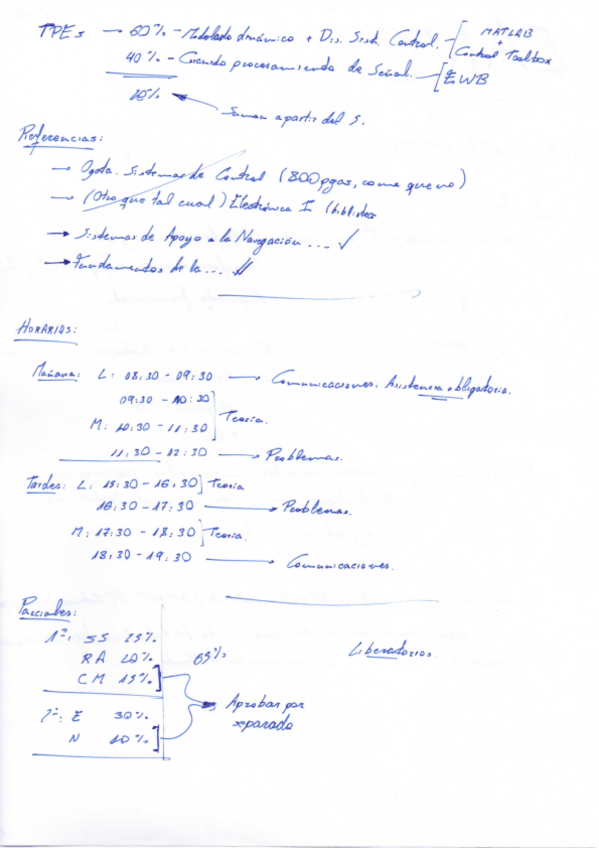 TPEs → 60% - Modelado dinámico + Dis. Sist. Control. [MATLAB + Control Toolbox
40% - Circuito procesamiento de Señal. [EWB
10%
Suman a partir del 5.
Referencias:
→ Ogata. Sistemas de Control (800 pgas, como que no)
→ (Otro que tal cual) Electrónica I (biblioteca
→ Sistemas de Apoyo a la Navegación... ✓
→ Fundamentos de la... ✓
HORARIOS:
Mañana: L: 08:30 - 09:30 — Comunicaciones. Asistencia obligatoria.
09:30 - 10:30
M: 10:30 - 11:30 ] Teoría.
11:30 - 12:30 → Problemas.
Tardes: L: 15:30 - 16:30] Teoría
16:30 - 17:30 → Problemas.
M: 17:30 - 18:30] Teoría.
18:30 - 19:30 → Comunicaciones.
Parciales:
1º: SS 25%
RA 20% 65% Liberadorios
CM 15%]
Aprobar por separado
2º: E 30%
N 10%]